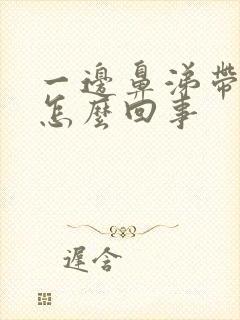 一邊鼻涕帶
怎麼回事
遲含